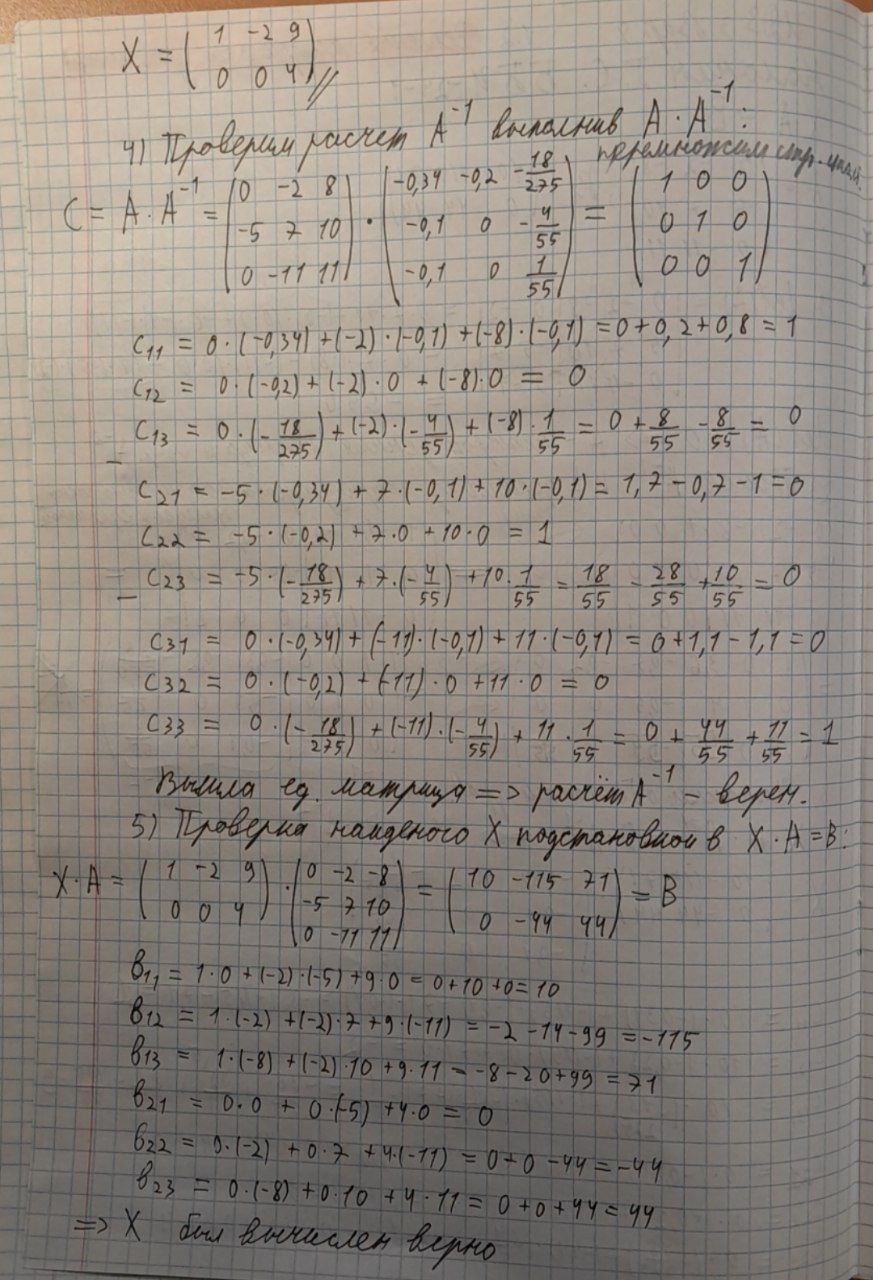 X = (1 -2 9
0 0 4)
4) Проверим расчет A⁻¹ выполнив A · A⁻¹:
перемножим стр.
C = A · A⁻¹ = (0 -2 8
-5 7 10
0 -11 11) · (-0,34 -0,2 -18/275
-0,1 0 -4/55
-0,1 0 1/55) = (1 0 0
0 1 0
0 0 1)
C11 = 0·(-0,34)+(-2)·(-0,1)+(-8)·(-0,1) = 0+0,2+0,8 = 1
C12 = 0·(-0,2)+(-2)·0+(-8)·0 = 0
C13 = 0·(-18/275)+(-2)·(-4/55)+(-8)·1/55 = 0+8/55-8/55 = 0
C21 = -5·(-0,34)+7·(-0,1)+10·(-0,1) = 1,7-0,7-1=0
C22 = -5·(-0,2)+7·0+10·0 = 1
C23 = -5·(-18/275)+7·(-4/55)+10·1/55 = 18/55-28/55+10/55 = 0
C31 = 0·(-0,34)+(-11)·(-0,1)+11·(-0,1) = 0+1,1-1,1=0
C32 = 0·(-0,2)+(-11)·0+11·0 = 0
C33 = 0·(-18/275)+(-11)·(-4/55)+11·1/55 = 0+44/55+11/55 = 1
Вышла ед. матрица => расчёт A⁻¹ – верен.
5) Проверка найденого X подстановкой в X·A=B:
X·A = (1 -2 9
0 0 4) · (0 -2 -8
-5 7 10
0 -11 11) = (10 -115 71
0 -44 44) = B
B11 = 1·0+(-2)·(-5)+9·0 = 0+10+0=10
B12 = 1·(-2)+(-2)·7+9·(-11) = -2-14-99 = -115
B13 = 1·(-8)+(-2)·10+9·11 = -8-20+99 = 71
B21 = 0·0+0·(-5)+4·0 = 0
B22 = 0·(-2)+0·7+4·(-11) = 0+0-44 = -44
B23 = 0·(-8)+0·10+4·11 = 0+0+44 = 44
=> X был вычислен верно